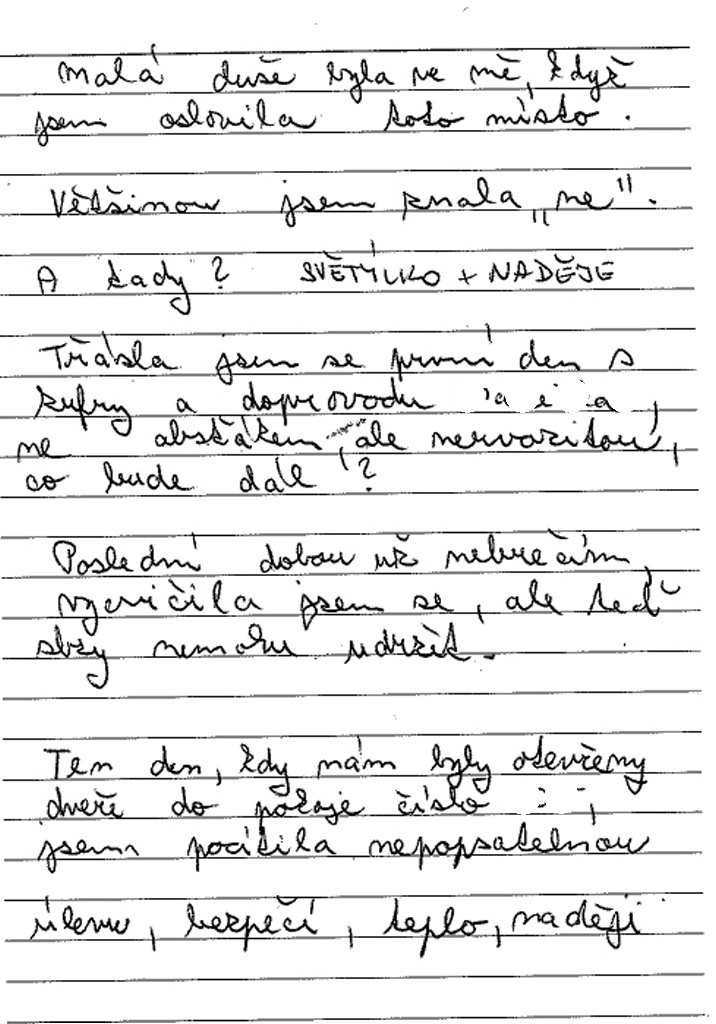 Malá duše byla ve mě, když
jsem oslovila toto místo.
Většinou jsem znala „ne".
A tady? SVĚTÝLKO + NADĚJE
Třásla jsem se první den s
kufry a doprovodu
ne absťákem, ale nervozitou,
co bude dál?
Poslední dobou už nebrečím,
vycvičila jsem se, ale teď
slzy nemohu udržet.
Ten den, kdy nám byly otevřeny
dveře do pokoje číslo
jsem pocítila nepopsatelnou
úlevu, bezpečí, teplo, naději